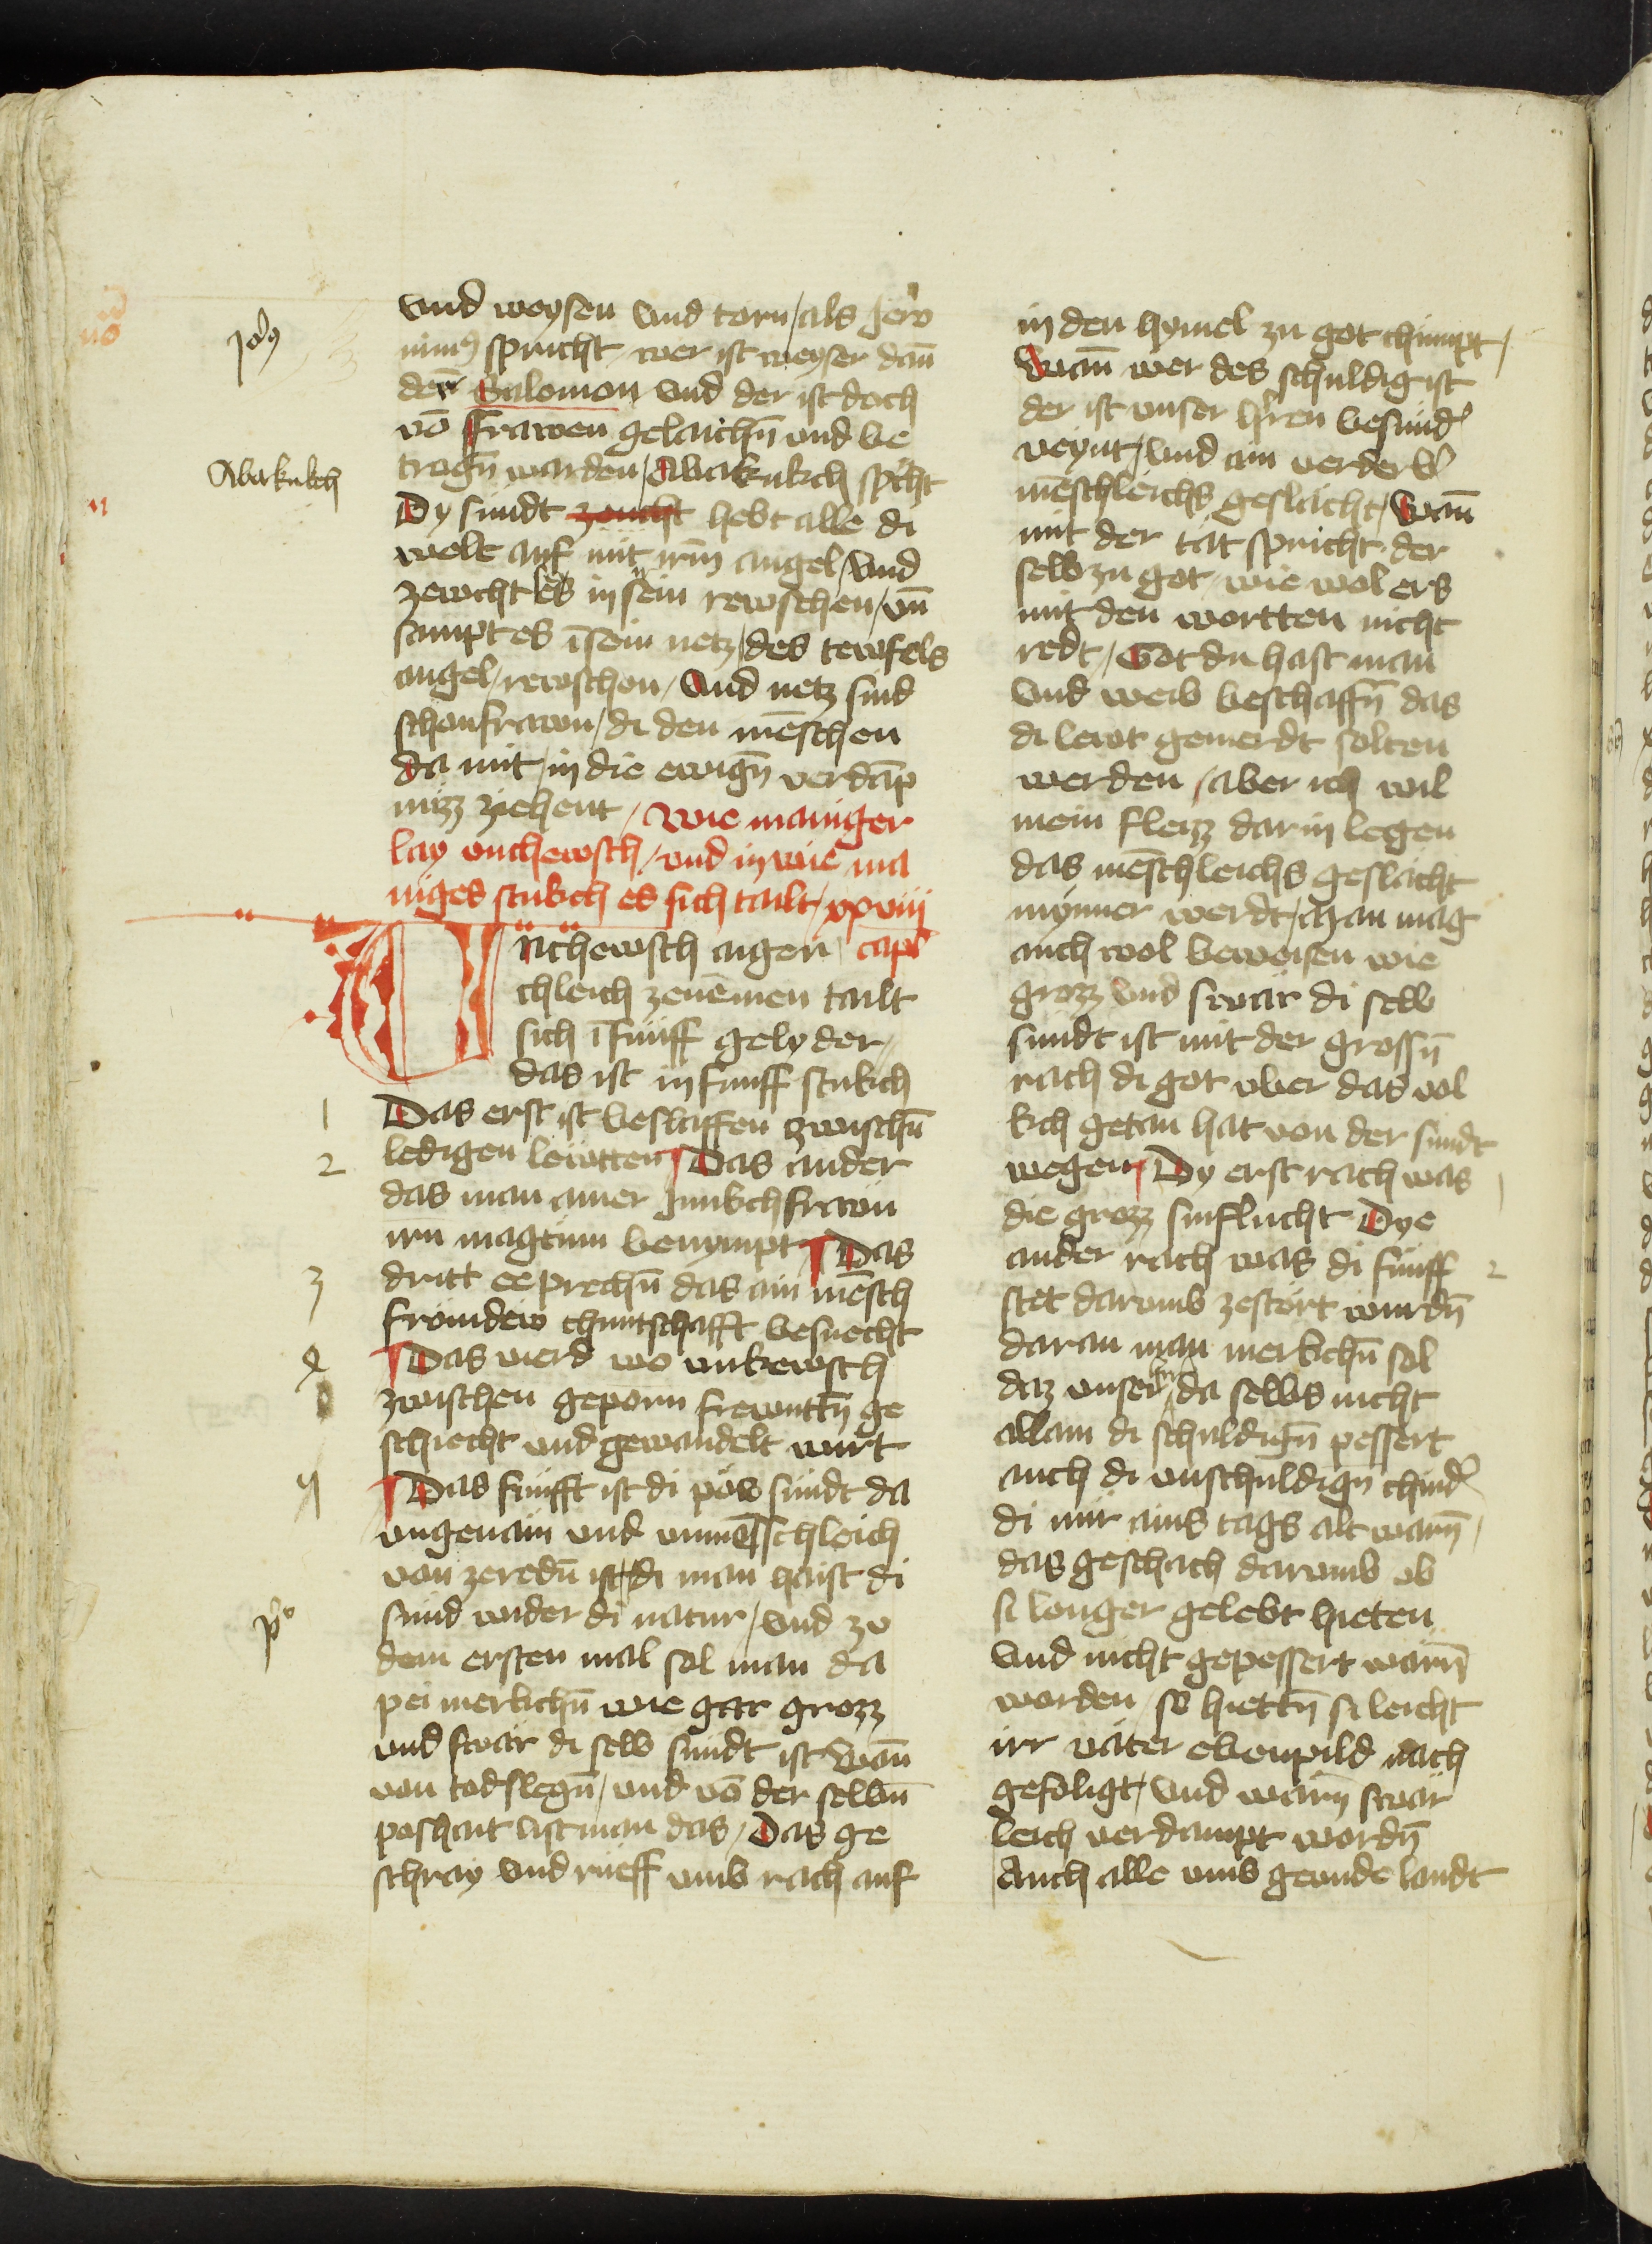 vnd weysen vnd torn / als Jero
nim9 spricht wer ist weyser dan̄
der Salomon vnd der ist doch
vō frawen gelaichn̄ vnd be
trogn̄ warden / Abakukch spͥcht
Dy sündt zeucht hebt alle di
welt auf mit irm̄ angel / vnd
zewcht es in sein rewschen / vn̄
sampt es ī sein netz / des tewfels
angel / rewschen / vnd netz sind
schon frawn / di den mēschen
da mit / in die ewign̄ verdāp
nüzz ziehent / Wie maniger
lay vnchewsch / vnd in wie ma
niges stukch es sich tailt / xxviii
Vnchewsch aigen capl
chleich zenēmen tailt
sich ī fünff gelyder /
das ist in fünff stukch
Das erst ist beslaffen zwischn̄
ledigen lewtten Das ander
das man ainer Junkchfrawn
irn magtum benympt Das
dritt ee prechn̄ das ain mēsch
fromdew chuntschafft besuecht
Das vierd wo vnkewsch
zwischen geporn frewntn̄ ge
schiecht vnd gewandelt wirt
Das fünfft ist di pös sündt da
vngenäm vnd vnmēschleich
von zeredn̄ ist / di man haist di
sünd wider di natur / vnd ze
dem ersten mal sol man da
pei merkchn̄ wie gar grozz
vnd swär di selb sündt ist Wan̄
von todslegn̄ / vnd vō der selbn̄
poshait list man das / Das ge
schray vnd rueff vmb rach auf
in den hymel zu got chümpt /
Wan̄ wer des schuldig ist
der ist vnser hͬren besundͬ
veynt / vnd ain verderbͬ
mēschleichs geslächt / Wan̄
mit der tät spricht der
selb zu got / wie wol ers
mit den wortten nicht
redt / Got du hast man
vnd weib beschaffn̄ das
di lewt gemerdt solten
werden / aber ich wil
mein fleizz dar in legen
das mēschleichs geslächt
mynner werdt / Man mag
auch wol beweisen wie
grozz vnd swär di selb
sündt ist mit der grossn̄
rach di got vber das vol
kch getan hat von der sündt
wegen Dy erst rach was
die grozz sinflucht Dye
ander rach was di fünff
stet darumb zestört wurdn̄
daran man merkchn̄ sol
daz vnser hͬ da selbs nicht
allain di schuldign̄ pessert
auch di vnschuldign̄ chindͬ
di nür ains tags alt warn̄ /
das geschach darumb ob
si lenger gelebt hieten
vnd nicht gepessert wärn̄
worden so hiettn̄ si leicht
irr väter ebenpild nach
gefoligt / vnd wärn̄ swär
leich verdampt wordn̄
Auch alle vmb geunde landt
Jeo9
Abakukch
1
2
3
4
5
pͦ
2